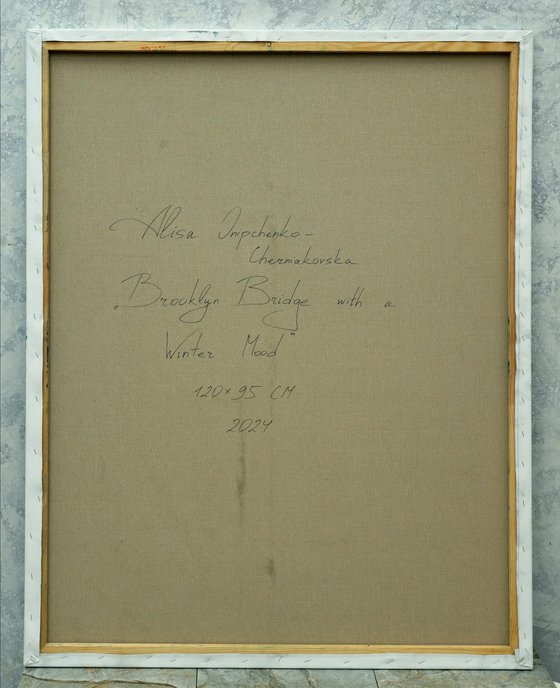 Alisa Onipchenko-
Cherniakovska
„Brooklyn Bridge with a
Winter Mood"
120x95 CM
2024